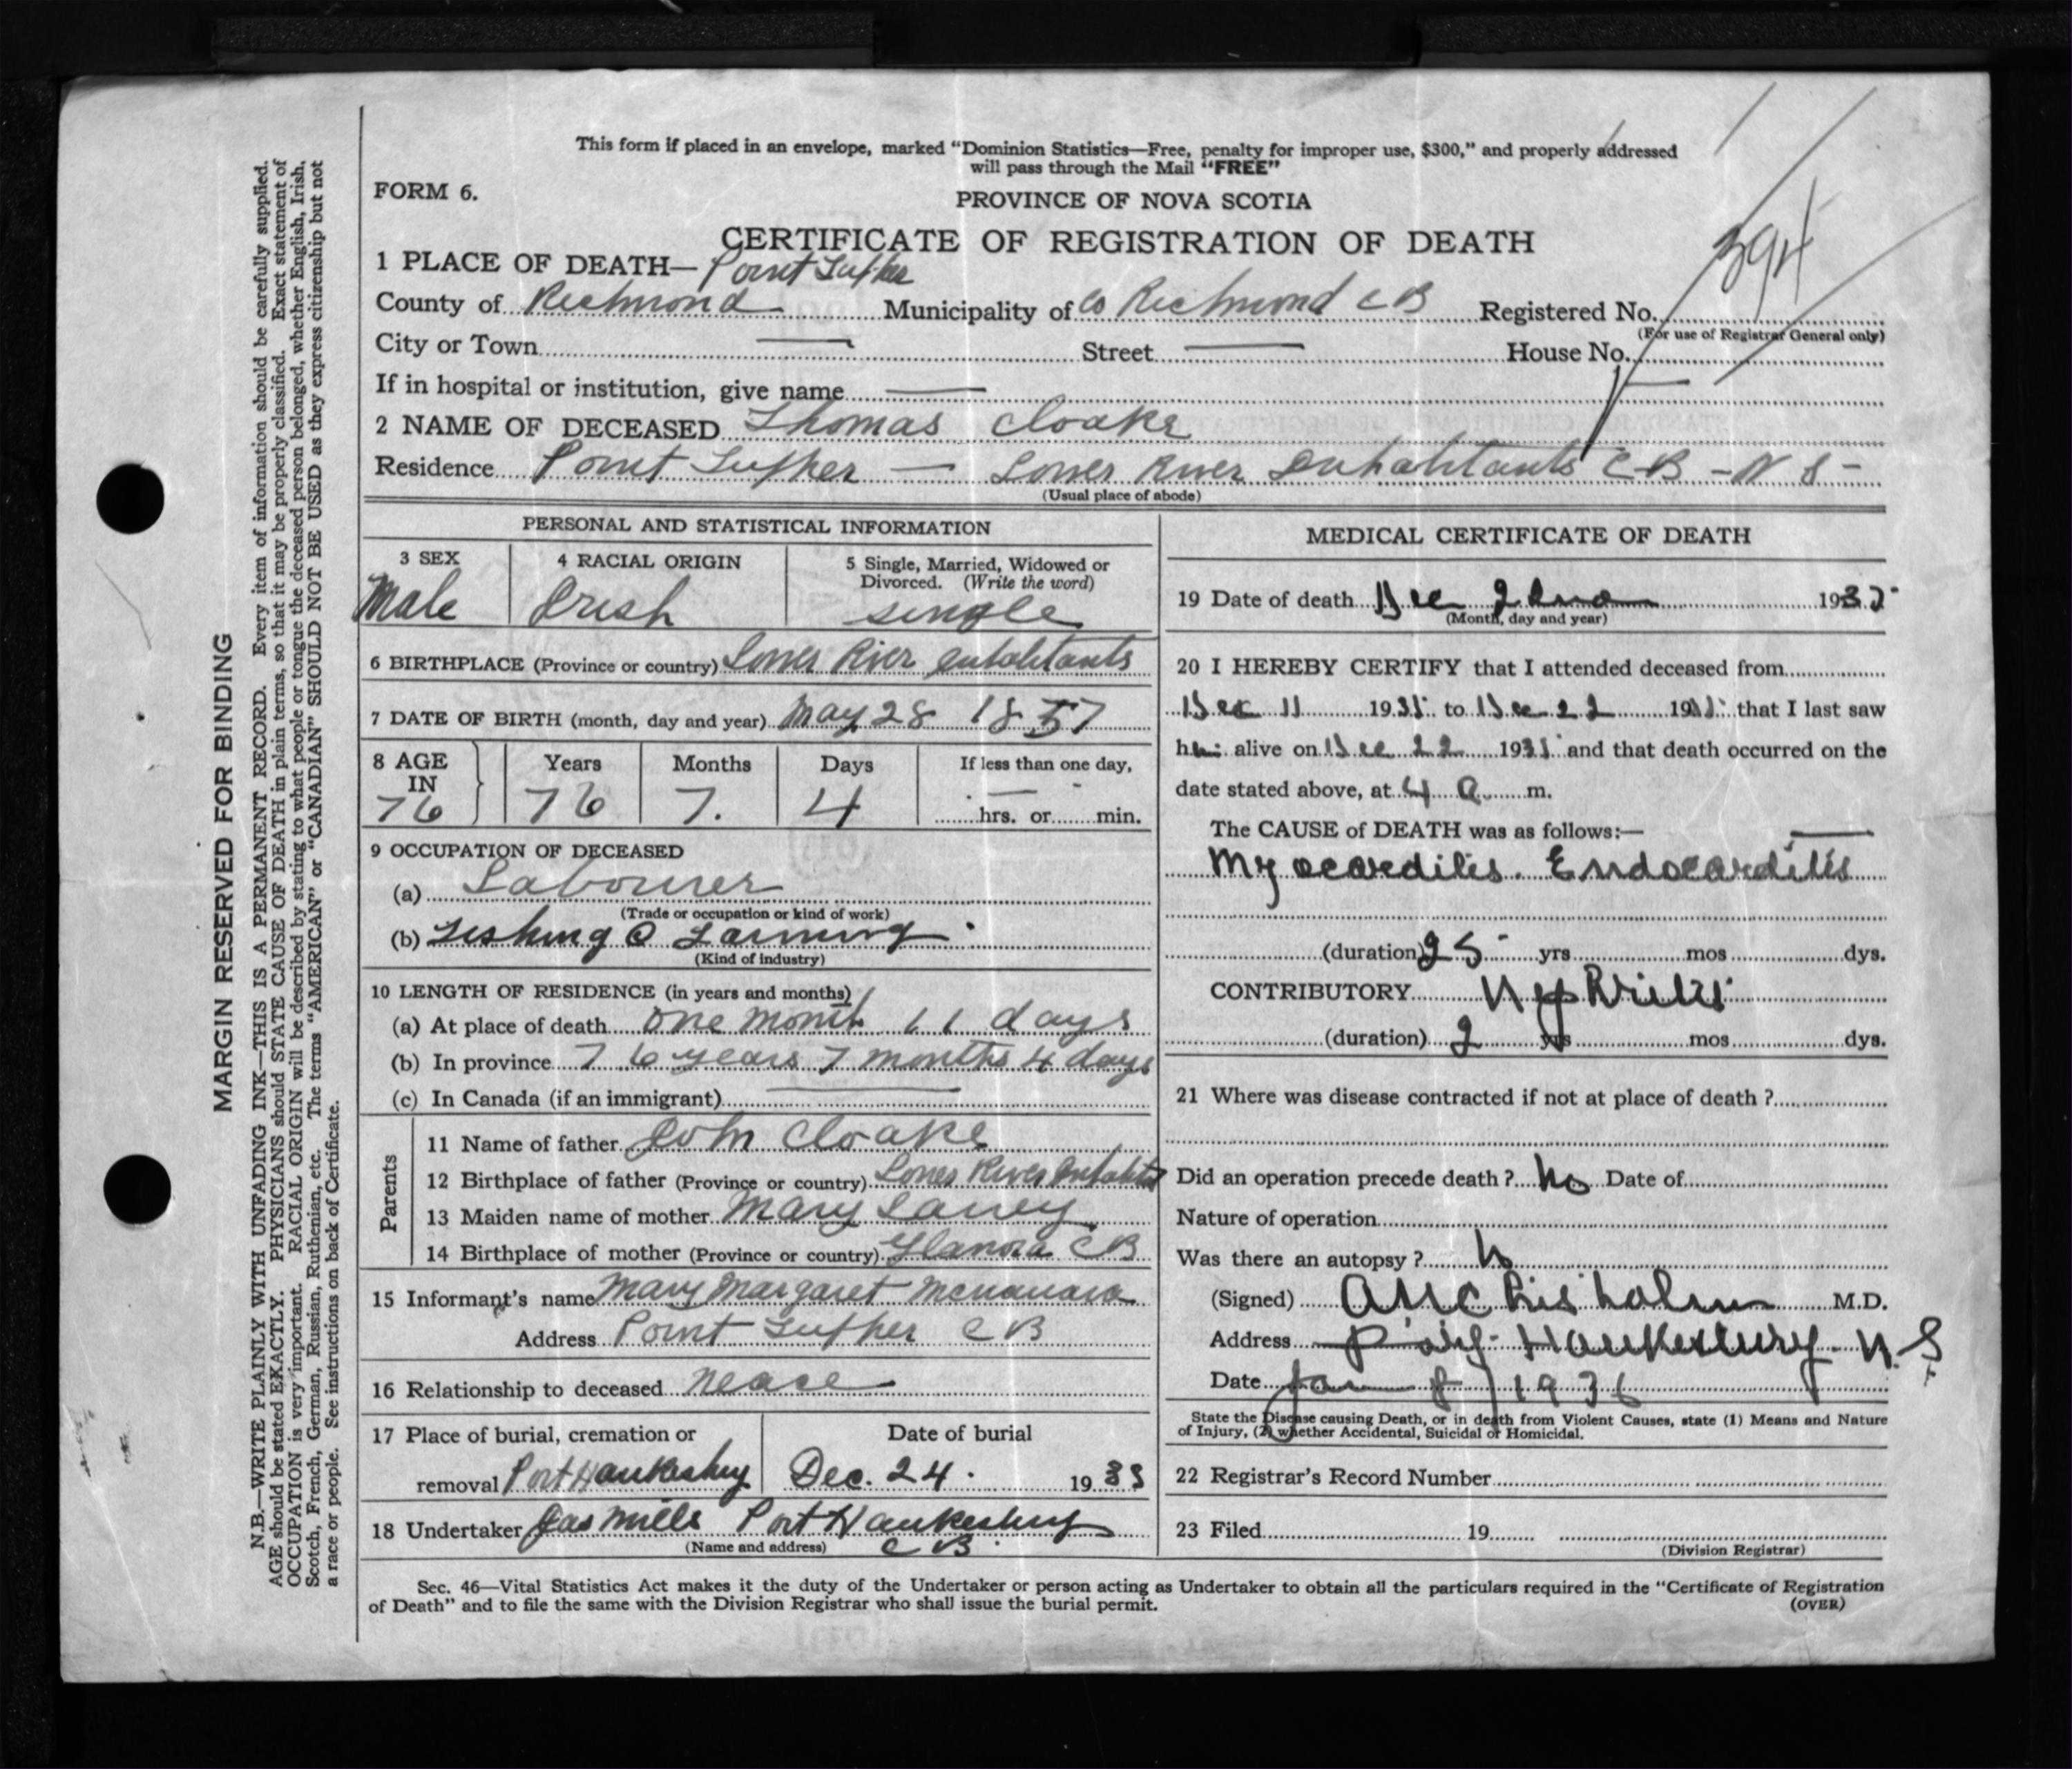 This form if placed in an envelope, marked "Dominion Statistics—Free, penalty for improper use, $300," and properly addressed
will pass through the Mail "FREE"
FORM 6.
PROVINCE OF NOVA SCOTIA
CERTIFICATE OF REGISTRATION OF DEATH
1 PLACE OF DEATH— Point Tupher
County of Richmond Municipality of Co Richmond C B Registered No. 394
(For use of Registrar General only)
City or Town — Street — House No. —
If in hospital or institution, give name —
2 NAME OF DECEASED Thomas Cloake
Residence Point Tupher — Lower River Inhabitants C-B - N S -
(Usual place of abode)
PERSONAL AND STATISTICAL INFORMATION
3 SEX
Male
4 RACIAL ORIGIN
Irish
5 Single, Married, Widowed or
Divorced. (Write the word)
single
6 BIRTHPLACE (Province or country) Lower River Inhabitants
7 DATE OF BIRTH (month, day and year) May 28 1857
8 AGE IN 76
Years 76
Months 7.
Days 4
If less than one day,
— hrs. or min.
9 OCCUPATION OF DECEASED
(a) Labourer
(Trade or occupation or kind of work)
(b) Fishing & Farming
(Kind of industry)
10 LENGTH OF RESIDENCE (in years and months)
(a) At place of death one month 11 days
(b) In province 76 years 7 months 4 days
(c) In Canada (if an immigrant) —
Parents
11 Name of father John Cloake
12 Birthplace of father (Province or country) Lower River
13 Maiden name of mother Mary
14 Birthplace of mother (Province or country) C B
15 Informant's name Mary Margaret McNamara
Address Point Tupher C B
16 Relationship to deceased Neace
17 Place of burial, cremation or
removal Port Hawkesbury
Date of burial
Dec. 24. 1935
18 Undertaker Jas Mills Port Hawkesbury
(Name and address) C B.
MEDICAL CERTIFICATE OF DEATH
19 Date of death Dec 22nd 1935
(Month, day and year)
20 I HEREBY CERTIFY that I attended deceased from
Dec 11 1935 to Dec 22 1935 that I last saw
him alive on Dec 22 1935 and that death occurred on the
date stated above, at 4 a m.
The CAUSE of DEATH was as follows:—
Myocarditis. Endocarditis
(duration) 25 yrs mos dys.
CONTRIBUTORY Nephritis
(duration) 2 yrs mos dys.
21 Where was disease contracted if not at place of death ?
Did an operation precede death ? No Date of
Nature of operation
Was there an autopsy ? No
(Signed) Chisholm M.D.
Address Port Hawkesbury N. S
Date Jan 8 1936
State the Disease causing Death, or in death from Violent Causes, state (1) Means and Nature
of Injury, (2) whether Accidental, Suicidal or Homicidal.
22 Registrar's Record Number
23 Filed 19
(Division Registrar)
Sec. 46—Vital Statistics Act makes it the duty of the Undertaker or person acting as Undertaker to obtain all the particulars required in the "Certificate of Registration
of Death" and to file the same with the Division Registrar who shall issue the burial permit.
(OVER)
MARGIN RESERVED FOR BINDING
N.B.—WRITE PLAINLY WITH UNFADING INK—THIS IS A PERMANENT RECORD. Every item of information should be carefully supplied.
AGE should be stated EXACTLY. PHYSICIANS should STATE CAUSE OF DEATH in plain terms, so that it may be properly classified. Exact statement of
OCCUPATION is very important. RACIAL ORIGIN will be described by stating to what people or tongue the deceased person belonged, whether English, Irish,
Scotch, French, German, Russian, Ruthenian, etc. The terms "AMERICAN" or "CANADIAN" SHOULD NOT BE USED as they express citizenship but not
a race or people. See instructions on back of Certificate.